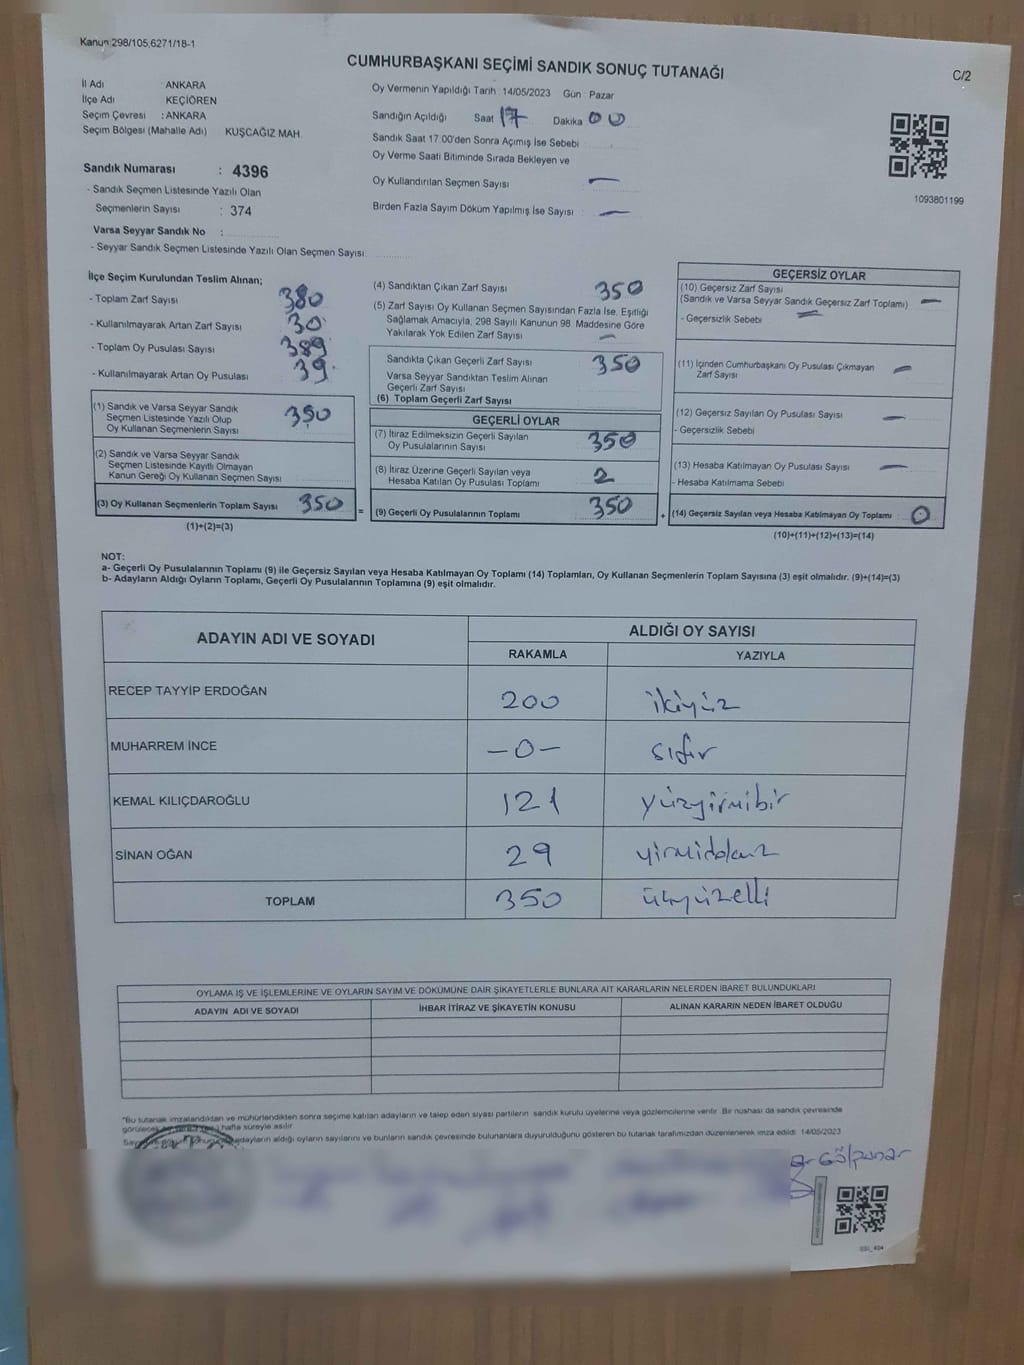 Kanun 298/105,6271/18-1
CUMHURBAŞKANI SEÇİMİ SANDIK SONUÇ TUTANAĞI
C/2
İl Adı : ANKARA
İlçe Adı KEÇİÖREN
Seçim Çevresi : ANKARA
Seçim Bölgesi (Mahalle Adı) KUŞCAĞIZ MAH.
Sandık Numarası : 4396
- Sandık Seçmen Listesinde Yazılı Olan
Seçmenlerin Sayısı : 374
Varsa Seyyar Sandık No :
- Seyyar Sandık Seçmen Listesinde Yazılı Olan Seçmen Sayısı
Oy Vermenin Yapıldığı Tarih : 14/05/2023 Gün : Pazar
Sandığın Açıldığı Saat 17 Dakika 00
Sandık Saat 17.00'den Sonra Açımış İse Sebebi
Oy Verme Saati Bitiminde Sırada Bekleyen ve
Oy Kullandırılan Seçmen Sayısı : —
Birden Fazla Sayım Döküm Yapılmış İse Sayısı : —
1093801199
İlçe Seçim Kurulundan Teslim Alınan;
- Toplam Zarf Sayısı 380
- Kullanılmayarak Artan Zarf Sayısı 30
- Toplam Oy Pusulası Sayısı 389
- Kullanılmayarak Artan Oy Pusulası 39
(1) Sandık ve Varsa Seyyar Sandık
Seçmen Listesinde Yazılı Olup
Oy Kullanan Seçmenlerin Sayısı 350
(2) Sandık ve Varsa Seyyar Sandık
Seçmen Listesinde Kayıtlı Olmayan
Kanun Gereği Oy Kullanan Seçmen Sayısı
(3) Oy Kullanan Seçmenlerin Toplam Sayısı 350
(1)+(2)=(3)
(4) Sandıktan Çıkan Zarf Sayısı 350
(5) Zarf Sayısı Oy Kullanan Seçmen Sayısından Fazla İse, Eşitliği
Sağlamak Amacıyla, 298 Sayılı Kanunun 98. Maddesine Göre
Yakılarak Yok Edilen Zarf Sayısı —
Sandıkta Çıkan Geçerli Zarf Sayısı 350
Varsa Seyyar Sandıktan Teslim Alınan
Geçerli Zarf Sayısı
(6) Toplam Geçerli Zarf Sayısı :
GEÇERLİ OYLAR
(7) İtiraz Edilmeksizin Geçerli Sayılan
Oy Pusulalarının Sayısı 350
(8) İtiraz Üzerine Geçerli Sayılan veya
Hesaba Katılan Oy Pusulası Toplamı 2
= (9) Geçerli Oy Pusulalarının Toplamı 350
GEÇERSİZ OYLAR
(10) Geçersiz Zarf Sayısı
(Sandık ve Varsa Seyyar Sandık Geçersiz Zarf Toplamı) —
- Geçersizlik Sebebi —
(11) İçinden Cumhurbaşkanı Oy Pusulası Çıkmayan
Zarf Sayısı —
(12) Geçersiz Sayılan Oy Pusulası Sayısı —
- Geçersizlik Sebebi
(13) Hesaba Katılmayan Oy Pusulası Sayısı —
- Hesaba Katılmama Sebebi
+ (14) Geçersiz Sayılan veya Hesaba Katılmayan Oy Toplamı : 0
(10)+(11)+(12)+(13)=(14)
NOT:
a- Geçerli Oy Pusulalarının Toplamı (9) ile Geçersiz Sayılan veya Hesaba Katılmayan Oy Toplamı (14) Toplamları, Oy Kullanan Seçmenlerin Toplam Sayısına (3) eşit olmalıdır. (9)+(14)=(3)
b- Adayların Aldığı Oyların Toplamı, Geçerli Oy Pusulalarının Toplamına (9) eşit olmalıdır.
ADAYIN ADI VE SOYADI
ALDIĞI OY SAYISI
RAKAMLA YAZIYLA
RECEP TAYYİP ERDOĞAN 200 ikiyüz
MUHARREM İNCE —0— sıfır
KEMAL KILIÇDAROĞLU 121 yüzyirmibir
SİNAN OĞAN 29 yirmidokuz
TOPLAM 350 üçyüzelli
OYLAMA İŞ VE İŞLEMLERİNE VE OYLARIN SAYIM VE DÖKÜMÜNE DAİR ŞİKAYETLERLE BUNLARA AİT KARARLARIN NELERDEN İBARET BULUNDUKLARI
ADAYIN ADI VE SOYADI İHBAR İTİRAZ VE ŞİKAYETİN KONUSU ALINAN KARARIN NEDEN İBARET OLDUĞU
*Bu tutanak imzalandıktan ve mühürlendikten sonra seçime katılan adayların ve talep eden siyasi partilerin sandık kurulu üyelerine veya gözlemcilerine verilir. Bir nüshası da sandık çevresinde
görülecek bir yere hafta süreyle asılır.
adayların aldığı oyların sayılarını ve bunların sandık çevresinde bulunanlara duyurulduğunu gösteren bu tutanak tarafımızdan düzenlenerek imza edildi. 14/05/2023
Gölpunar